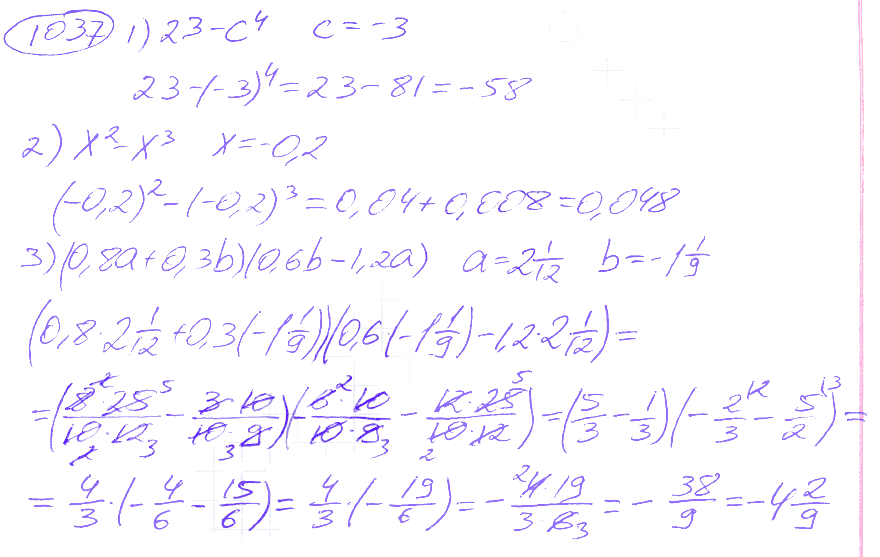 1037 1) 23-c⁴ c=-3
23-(-3)⁴=23-81=-58
2) x²-x³ x=-0,2
(-0,2)²-(-0,2)³=0,04+0,008=0,048
3) (0,8a+0,3b)(0,6b-1,2a) a=2 1/12 b=-1 1/9
(0,8·2 1/12+0,3(-1 1/9))(0,6(-1 1/9)-1,2·2 1/12)=
=((8·25)/(10·12)-(3·10)/(10·9))(-(6·10)/(10·9)-(12·25)/(10·12))=(5/3-1/3)(-2/3-5/2)=
=4/3·(-4/6-15/6)=4/3·(-19/6)=-(4·19)/(3·6)=-38/9=-4 2/9